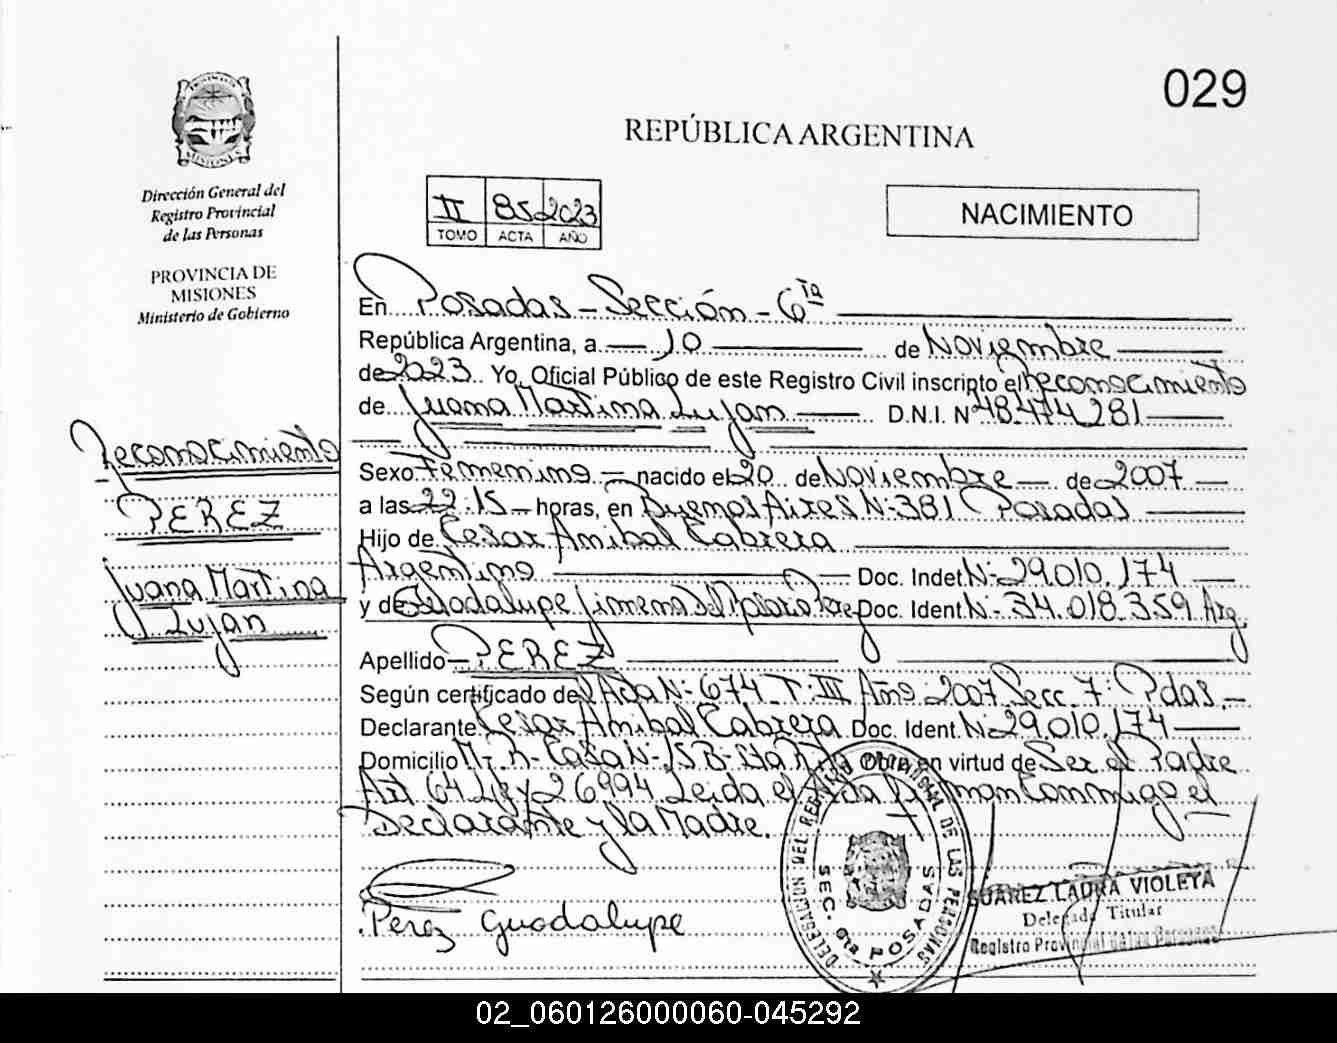 029
REPÚBLICA ARGENTINA
Dirección General del
Registro Provincial
de las Personas
PROVINCIA DE
MISIONES
Ministerio de Gobierno
II 85 2023
TOMO ACTA AÑO
NACIMIENTO
En Posadas - Sección - 6ta
República Argentina, a 10 de Noviembre
de 2023 Yo, Oficial Público de este Registro Civil inscripto el Reconocimiento
de Juana Martina Lujan D.N.I. Nº 48.474.281
Reconocimiento
PEREZ
Juana Martina
Lujan
Sexo Femenino nacido el 20 de Noviembre de 2007
a las 22:15 horas, en Buenos Aires Nº 381 Posadas
Hijo de Cesar Anibal Cabrera
Argentino Doc. Indet. Nº 29.010.174
y de Guadalupe Jimena Del Rosario Perez Doc. Ident. Nº 34.018.359 Arg.
Apellido PEREZ
Según certificado del Acta Nº 674 T: III Año: 2007 Secc. 7: Pdas.
Declarante Cesar Anibal Cabrera Doc. Ident. Nº 29.010.174
Domicilio Casa Nº 15 B- Sta Rita Obra en virtud de Ser el Padre
Art 64 Ley 26994 Leida el Acta Firman Conmigo el
Declarante y la Madre.
Perez Guadalupe
DELEGACION DEL REGISTRO PROVINCIAL DE LAS PERSONAS
SEC. 6ta POSADAS
SUAREZ LAURA VIOLETA
Delegada Titular
Registro Provincial de las Personas
02_060126000060-045292